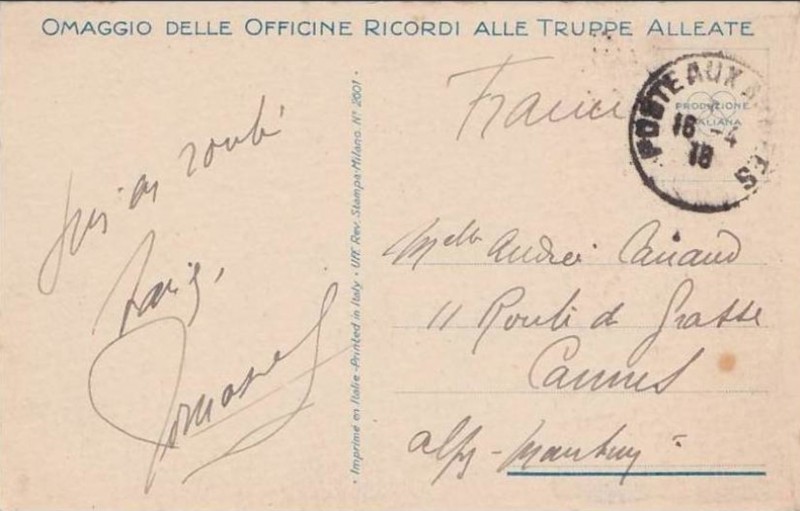 OMAGGIO DELLE OFFICINE RICORDI ALLE TRUPPE ALLEATE
suis en route
Paris,
Imprimé en Italie - Printed in Italy · Uff. Rev. Stampa - Milano. N° 2001
France
PRODUZIONE
ITALIANA
POSTE AUX ARMÉES
16 -4
18
Melle Andrée Canaud
11 Route de Grasse
Cannes
Alpes-Maritimes